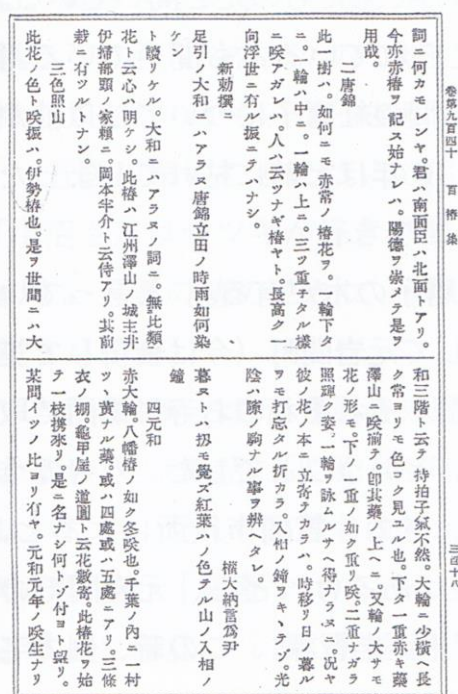 卷第九百四十 百椿集
三百十八
詞ニ何カモレンヤ。君ハ南面臣ハ北面トアリ。
今亦赤椿ヲ記ス始ナレハ。陽德ヲ崇メテ是ヲ
用哉。
二唐錦
此一樹ハ。如何ニモ赤常ノ椿花ヲ。一輪下ク
ニ。一輪ハ中ニ。一輪ハ上ニ。三ヲ重チタル樣
ニ咲アガレハ。人ハ云ツナギ椿ヤト。長高ク一
向浮世ニ有ル振ニテハナシ。
新勅撰ニ
足引ノ大和ニハアラヌ唐錦立田ノ時雨如何染
ケン
ト讀リケル。大和ニハアラヌノ詞ニ。無比類
花ト云心ハ明ケシ。此椿ハ江州澤山ノ城主井
伊掃部頭ノ家賴ニ。岡本半介ト云侍アリ。其前
栽ニ有ツルトナン。
三色照山
此花ノ色ト咲振ハ。伊勢椿也。是ヲ世間ニハ大
和三階ト云テ持拍子誠不然。大輪ニ少橫ヘ長
ク常ヨリモ色コク見ユル也。下ノ一重赤キ蘂
澤山ニ咲揃テ卽其蘂ノ上ヘニ。又輪ノ大サモ
花ノ形モ。下ノ一重ノ如ク重テ咲。二重ナガラ
照輝ク姿。一輪ヲ詠ムルサヘ得ナラヌニ況ヤ
彼ノ花ノ本ニ立寄テカラハ。時移リ日ノ暮ル
ヲモ打忘タル折カラ。入相ノ鐘ノキヽラゾ。光
陰ハ隙ノ駒ナル事ヲ辨ヘタレ。
權大納言爲尹
暮ヌトハ扨モ覺ズ紅葉ハノ色テル山ノ入相ノ
鐘
四元和
赤大輪。八幡椿ノ如ク冬咲也。千葉ノ內ニ一村
ツヽ黃ナル蘂。或ハ四處或ハ五處ニアリ。三條
衣ノ棚。龜甲屋ノ道圓ト云花數寄。此椿花ヲ始
テ一枝携來リ。是ニ名ナシ何トゾ付ヨト望リ。
某問イツノ比ヨリ有ヤ。元和元年ノ咲生ナリ